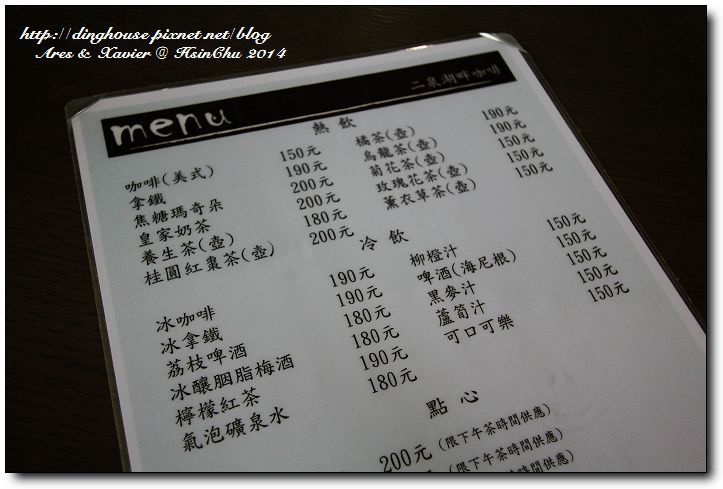 http://dinghouse.pixnet.net/blog
Ares & Xavier @ HsinChu 2014
menu 二泉湖畔咖啡
熱飲
咖啡(美式) 150元
拿鐵 190元
焦糖瑪奇朵 200元
皇家奶茶 200元
養生茶(壺) 180元
桂圓紅棗茶(壺) 200元
橘茶(壺) 190元
烏龍茶(壺) 190元
菊花茶(壺) 150元
玫瑰花茶(壺) 150元
薰衣草茶(壺) 150元
冷飲
冰咖啡 190元
冰拿鐵 190元
荔枝啤酒 180元
冰釀胭脂梅酒 180元
檸檬紅茶 190元
氣泡礦泉水 180元
柳橙汁 150元
啤酒(海尼根) 150元
黑麥汁 150元
蘆筍汁 150元
可口可樂 150元
點心
200元 (限下午茶時間供應)
(限下午茶時間供應)
(限下午茶時間供應)